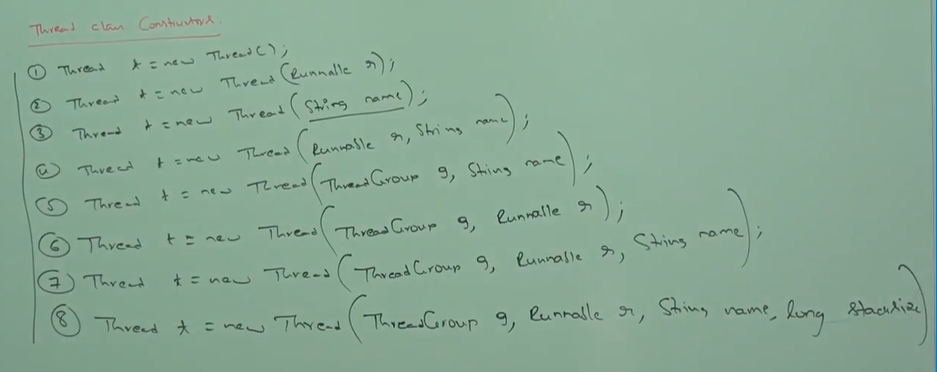 Thread class Constructors.
① Thread t = new Thread();
② Thread t = new Thread(Runnable r);
③ Thread t = new Thread(String name);
④ Thread t = new Thread(Runnable r, String name);
⑤ Thread t = new Thread(ThreadGroup g, String name);
⑥ Thread t = new Thread(ThreadGroup g, Runnable r);
⑦ Thread t = new Thread(ThreadGroup g, Runnable r, String name);
⑧ Thread t = new Thread(ThreadGroup g, Runnable r, String name, long stacksize)